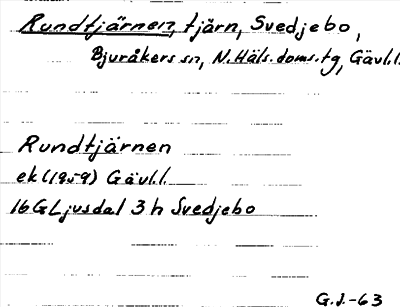 Rundtjärnen, tjärn, Svedjebo,
Bjuråkers sn, N.Häls.doms.tg, Gävl.l.
Rundtjärnen
ek(1959) Gävl.l.
16G Ljusdal 3h Svedjebo
G.J.-63